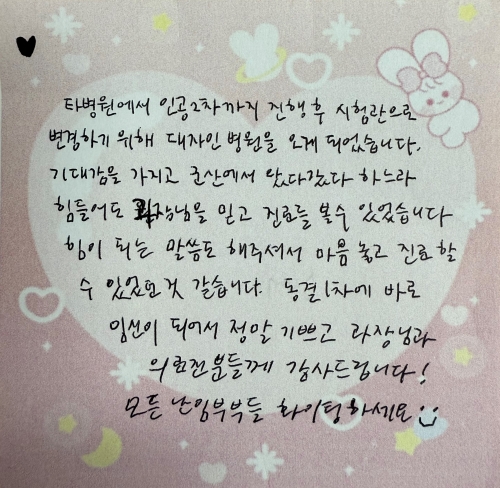 타병원에서 인공2차까지 진행 후 시험관으로
변경하기 위해 대자인 병원을 오게 되었습니다.
기대감을 가지고 군산에서 왔다갔다 하느라
힘들어도 과장님을 믿고 진료를 볼수 있었습니다
힘이 되는 말씀도 해주셔서 마음 놓고 진료 할
수 있었던것 같습니다. 동결1차에 바로
임신이 되어서 정말 기쁘고 과장님과
의료진분들께 감사드립니다!
모든 난임부부들 화이팅하세요